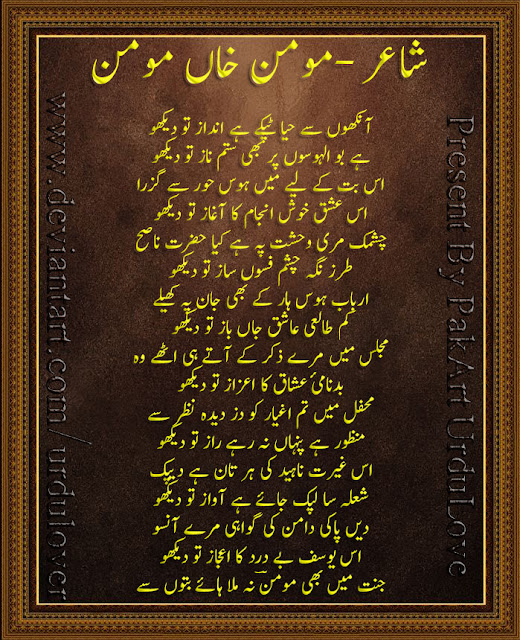 شاعر - مومن خاں مومن
آنکھوں سے حیا ٹپکے ہے انداز تو دیکھو
ہے بو الہوسوں پر بھی ستم ناز تو دیکھو
اس بت کے لیے میں ہوس حور سے گزرا
اس عشق خوش انجام کا آغاز تو دیکھو
چشمک مری وحشت پہ ہے کیا حضرت ناصح
طرز نگہ چشم فسوں ساز تو دیکھو
ارباب ہوس ہار کے بھی جان پہ کھیلے
کم طالعی عاشق جاں باز تو دیکھو
مجلس میں مرے ذکر کے آتے ہی اٹھے وہ
بدنامیٔ عشاق کا اعزاز تو دیکھو
محفل میں تم اغیار کو دز دیدہ نظر سے
منظور ہے پنہاں نہ رہے راز تو دیکھو
اس غیرت ناہید کی ہر تان ہے دیپک
شعلہ سا لپک جائے ہے آواز تو دیکھو
دیں پاکی دامن کی گواہی مرے آنسو
اس یوسف بے درد کا اعجاز تو دیکھو
جنت میں بھی مومنؔ نہ ملا ہائے بتوں سے
Present By PakArt UrduLove
www.deviantart.com/urdulover